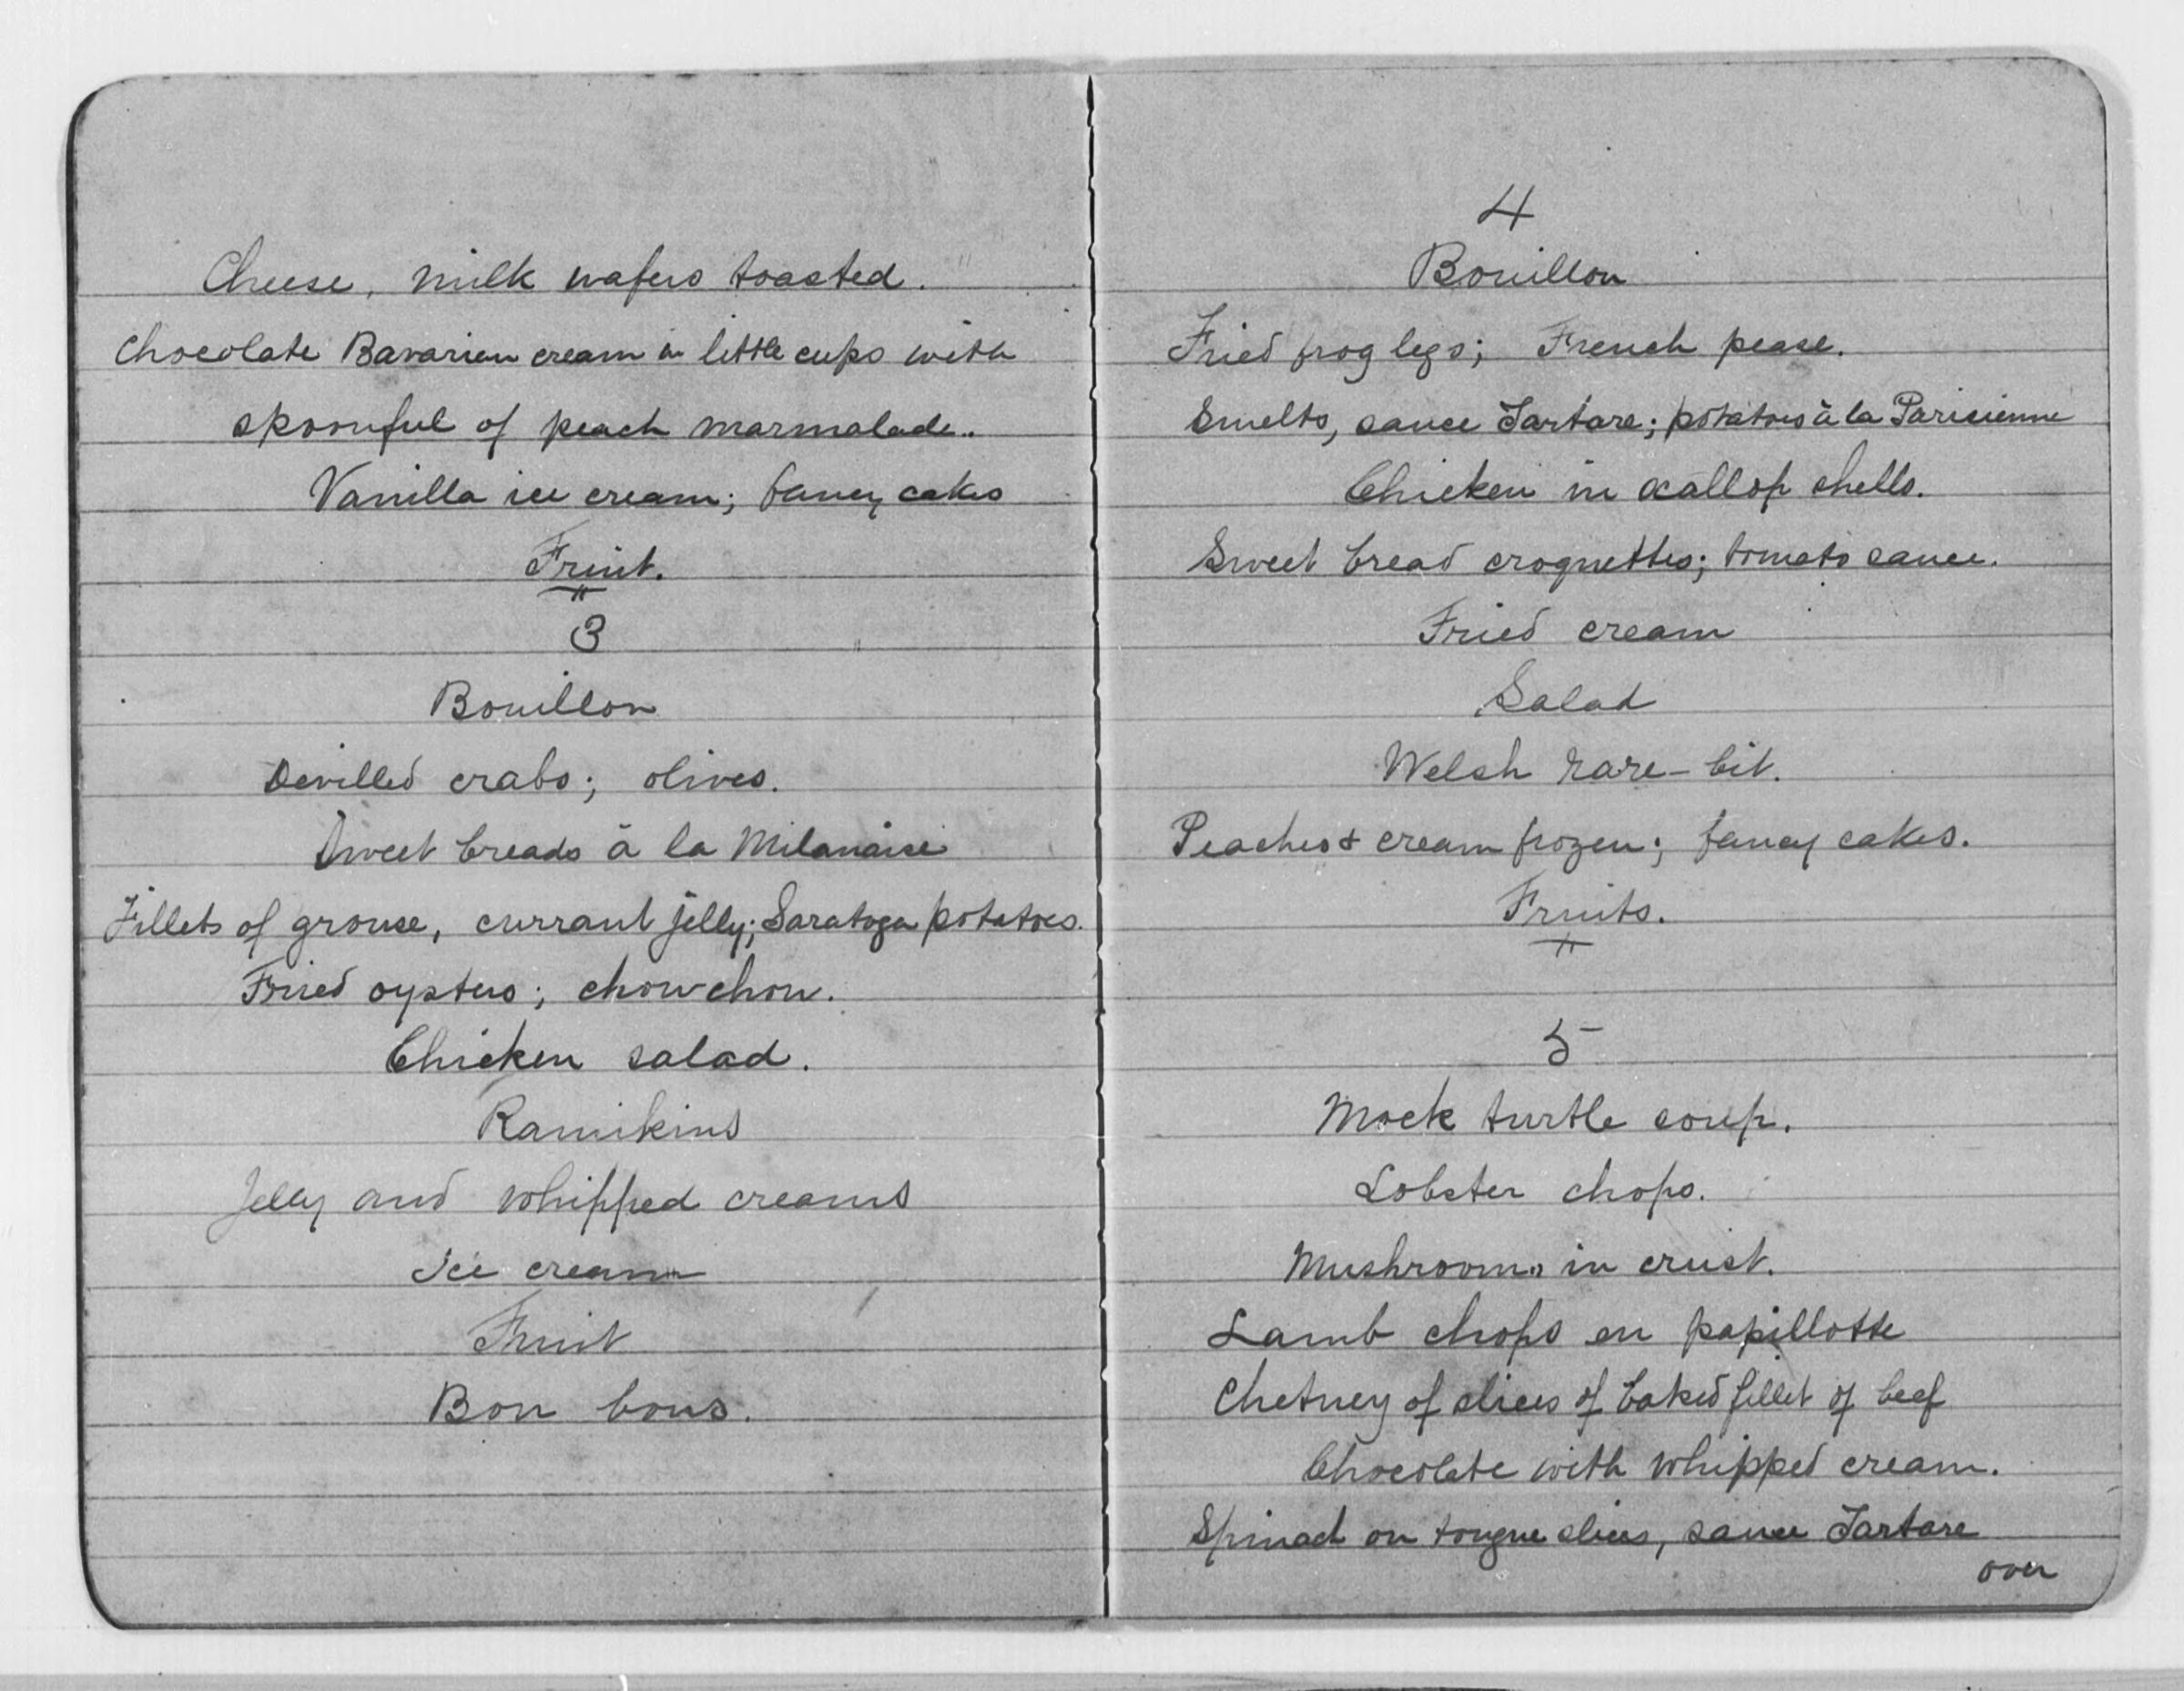 Cheese, milk wafers toasted.
Chocolate Bavarian cream in little cups with
spoonful of peach marmalade..
Vanilla ice cream; fancy cakes
Fruit.
3
Bouillon
Devilled crabs; olives.
Sweet breads à la Milanaise
Fillets of grouse, currant jelly; Saratoga potatoes.
Fried oysters; chowchow.
Chicken salad.
Ramikins
Jelly and whipped creams
Ice cream
Fruit
Bon bons.
4
Bouillon
Fried frog legs; French pease.
Smelts, sauce Tartare; potatoes à la Parisienne
Chicken in scallop shells.
Sweet bread croquettes; tomato sauce.
Fried cream
Salad
Welsh rare-bit.
Peaches & cream frozen; fancy cakes.
Fruits.
5
Mock turtle soup.
Lobster chops.
Mushrooms in crust.
Lamb chops en papillotte
Chetney of slices of baked fillet of beef
Chocolate with whipped cream.
Spinach on tongue slices, sauce Tartare
over